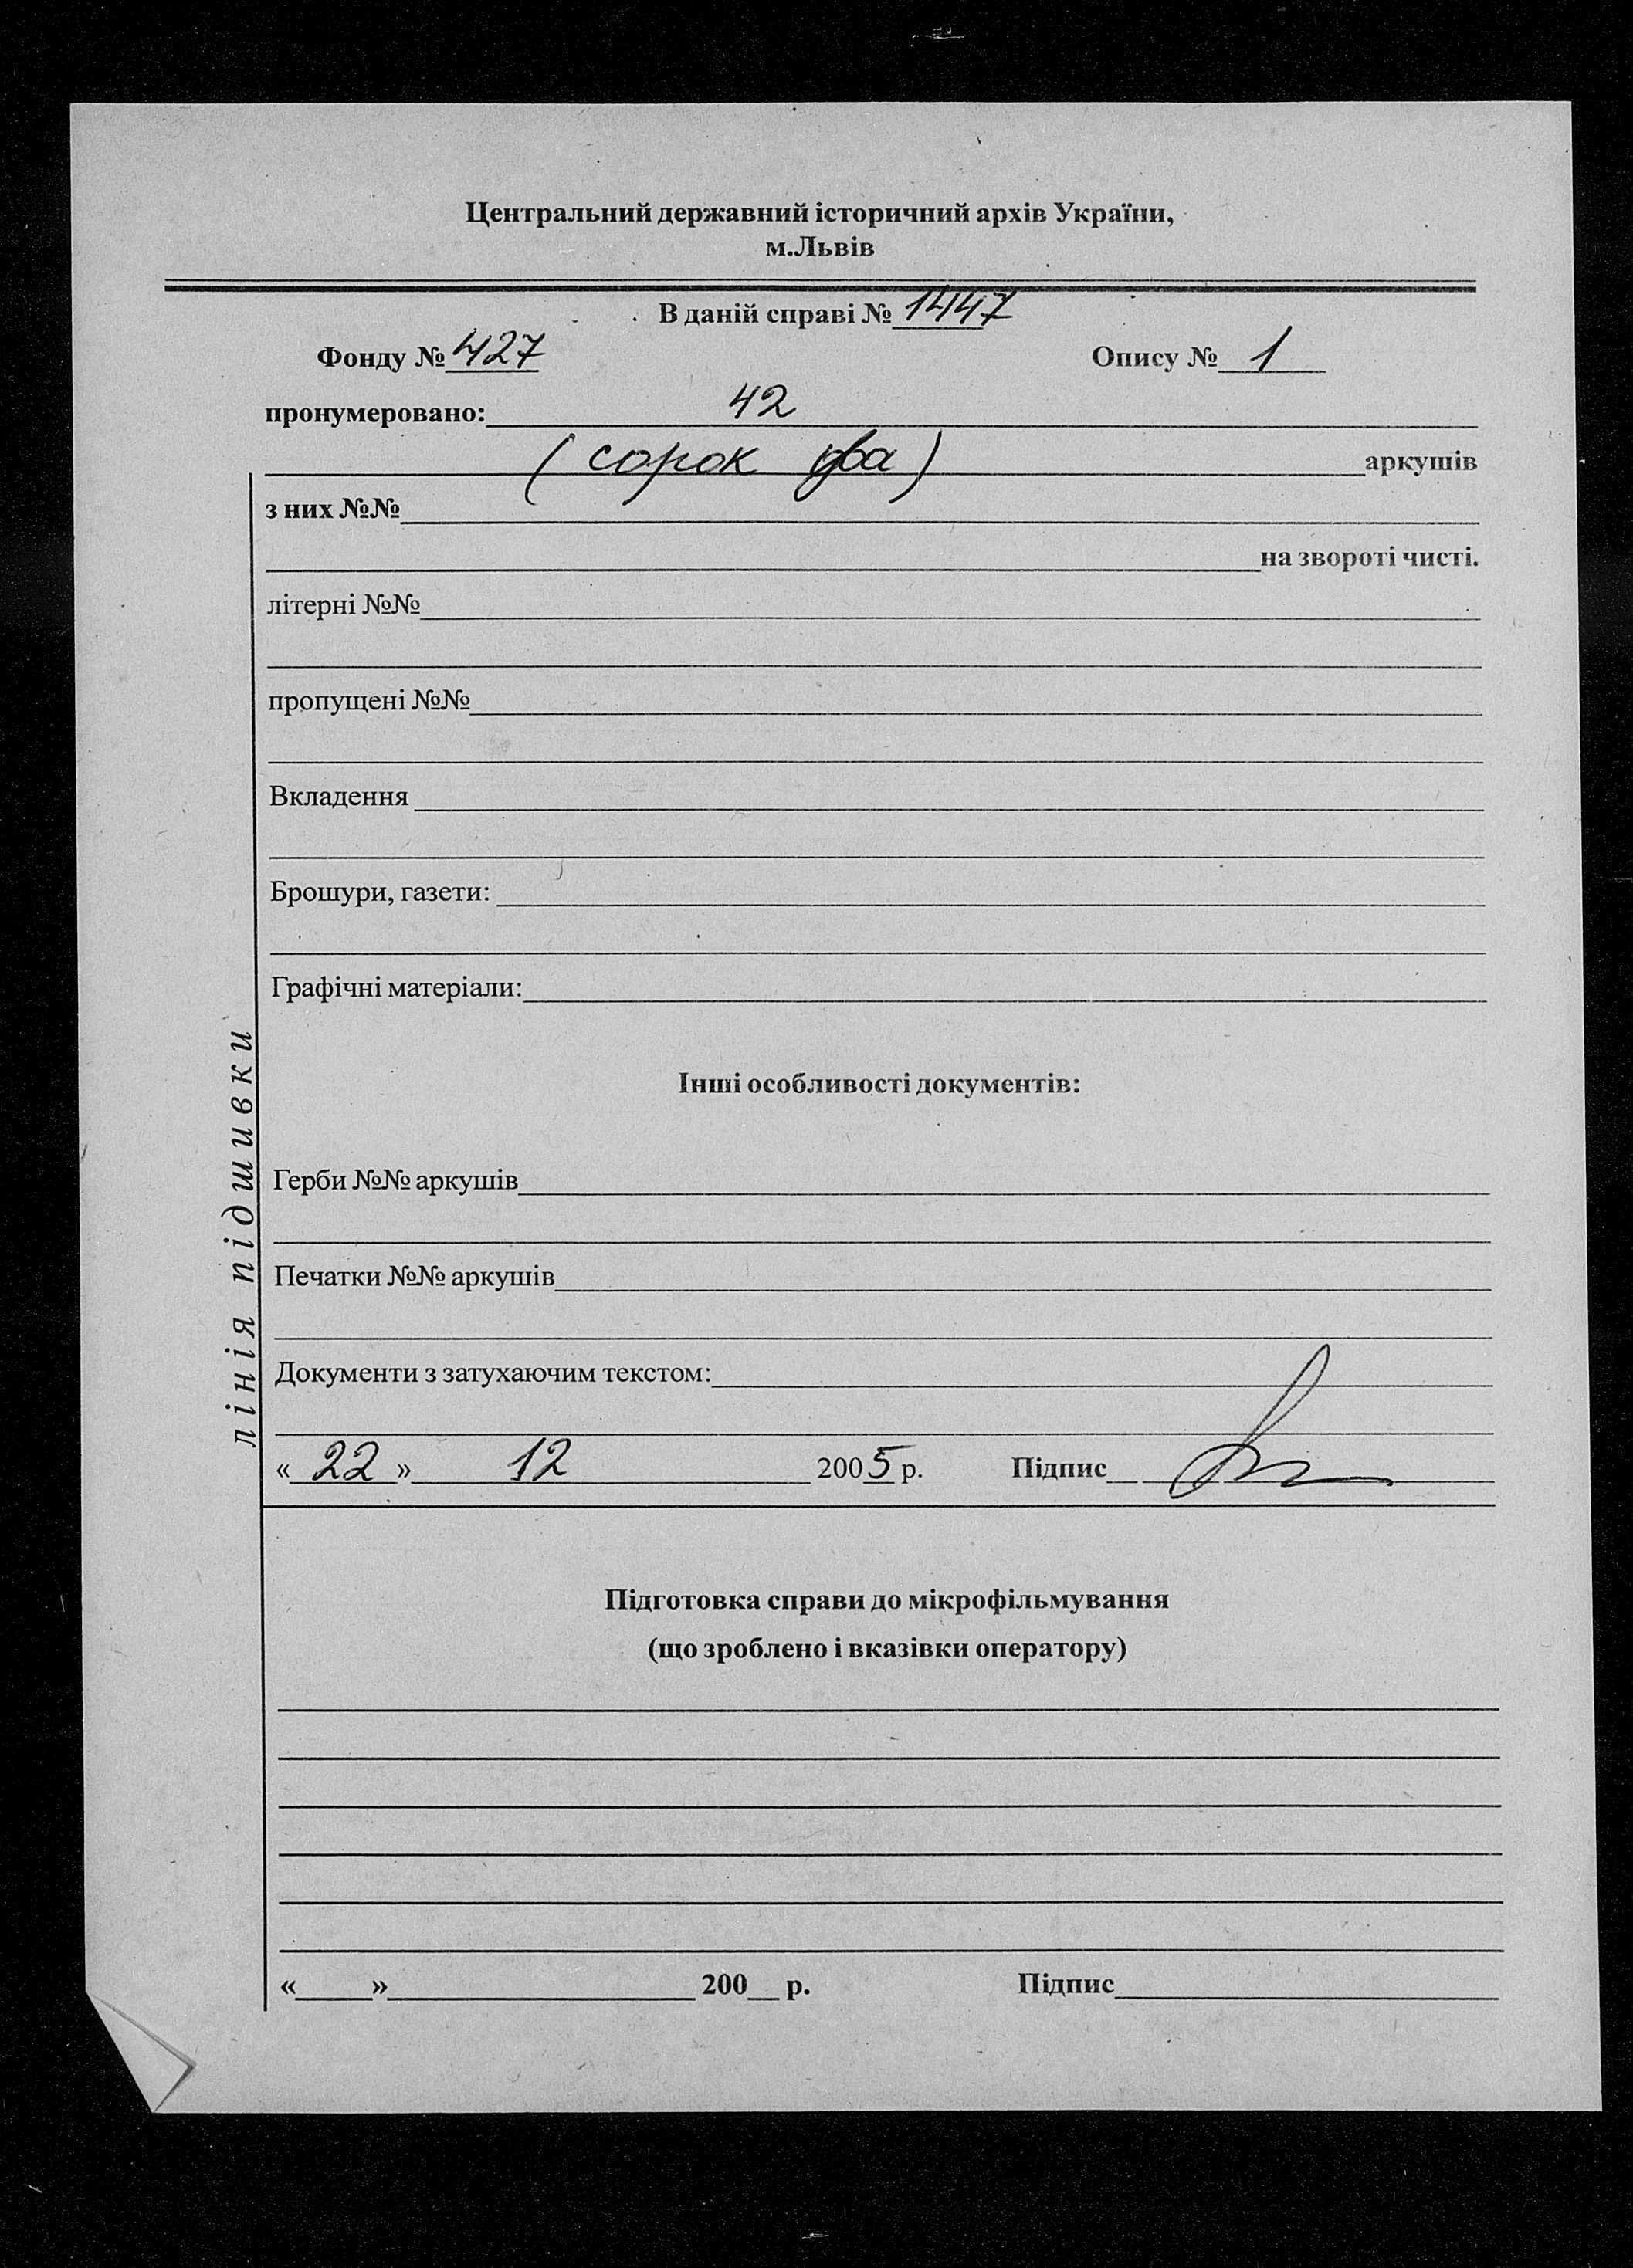 Центральний державний історичний архів України,
м.Львів
В даній справі № 1447
Фонду № 427 Опису № 1
пронумеровано: 42
(сорок два) аркушів
з них №№
на звороті чисті.
літерні №№
пропущені №№
Вкладення
Брошури, газети:
Графічні матеріали:
Інші особливості документів:
Герби №№ аркушів
Печатки №№ аркушів
Документи з затухаючим текстом:
« 22 » 12 2005 р. Підпис
лінія підшивки
Підготовка справи до мікрофільмування
(що зроблено і вказівки оператору)
«_____»____________________ 200__ р. Підпис